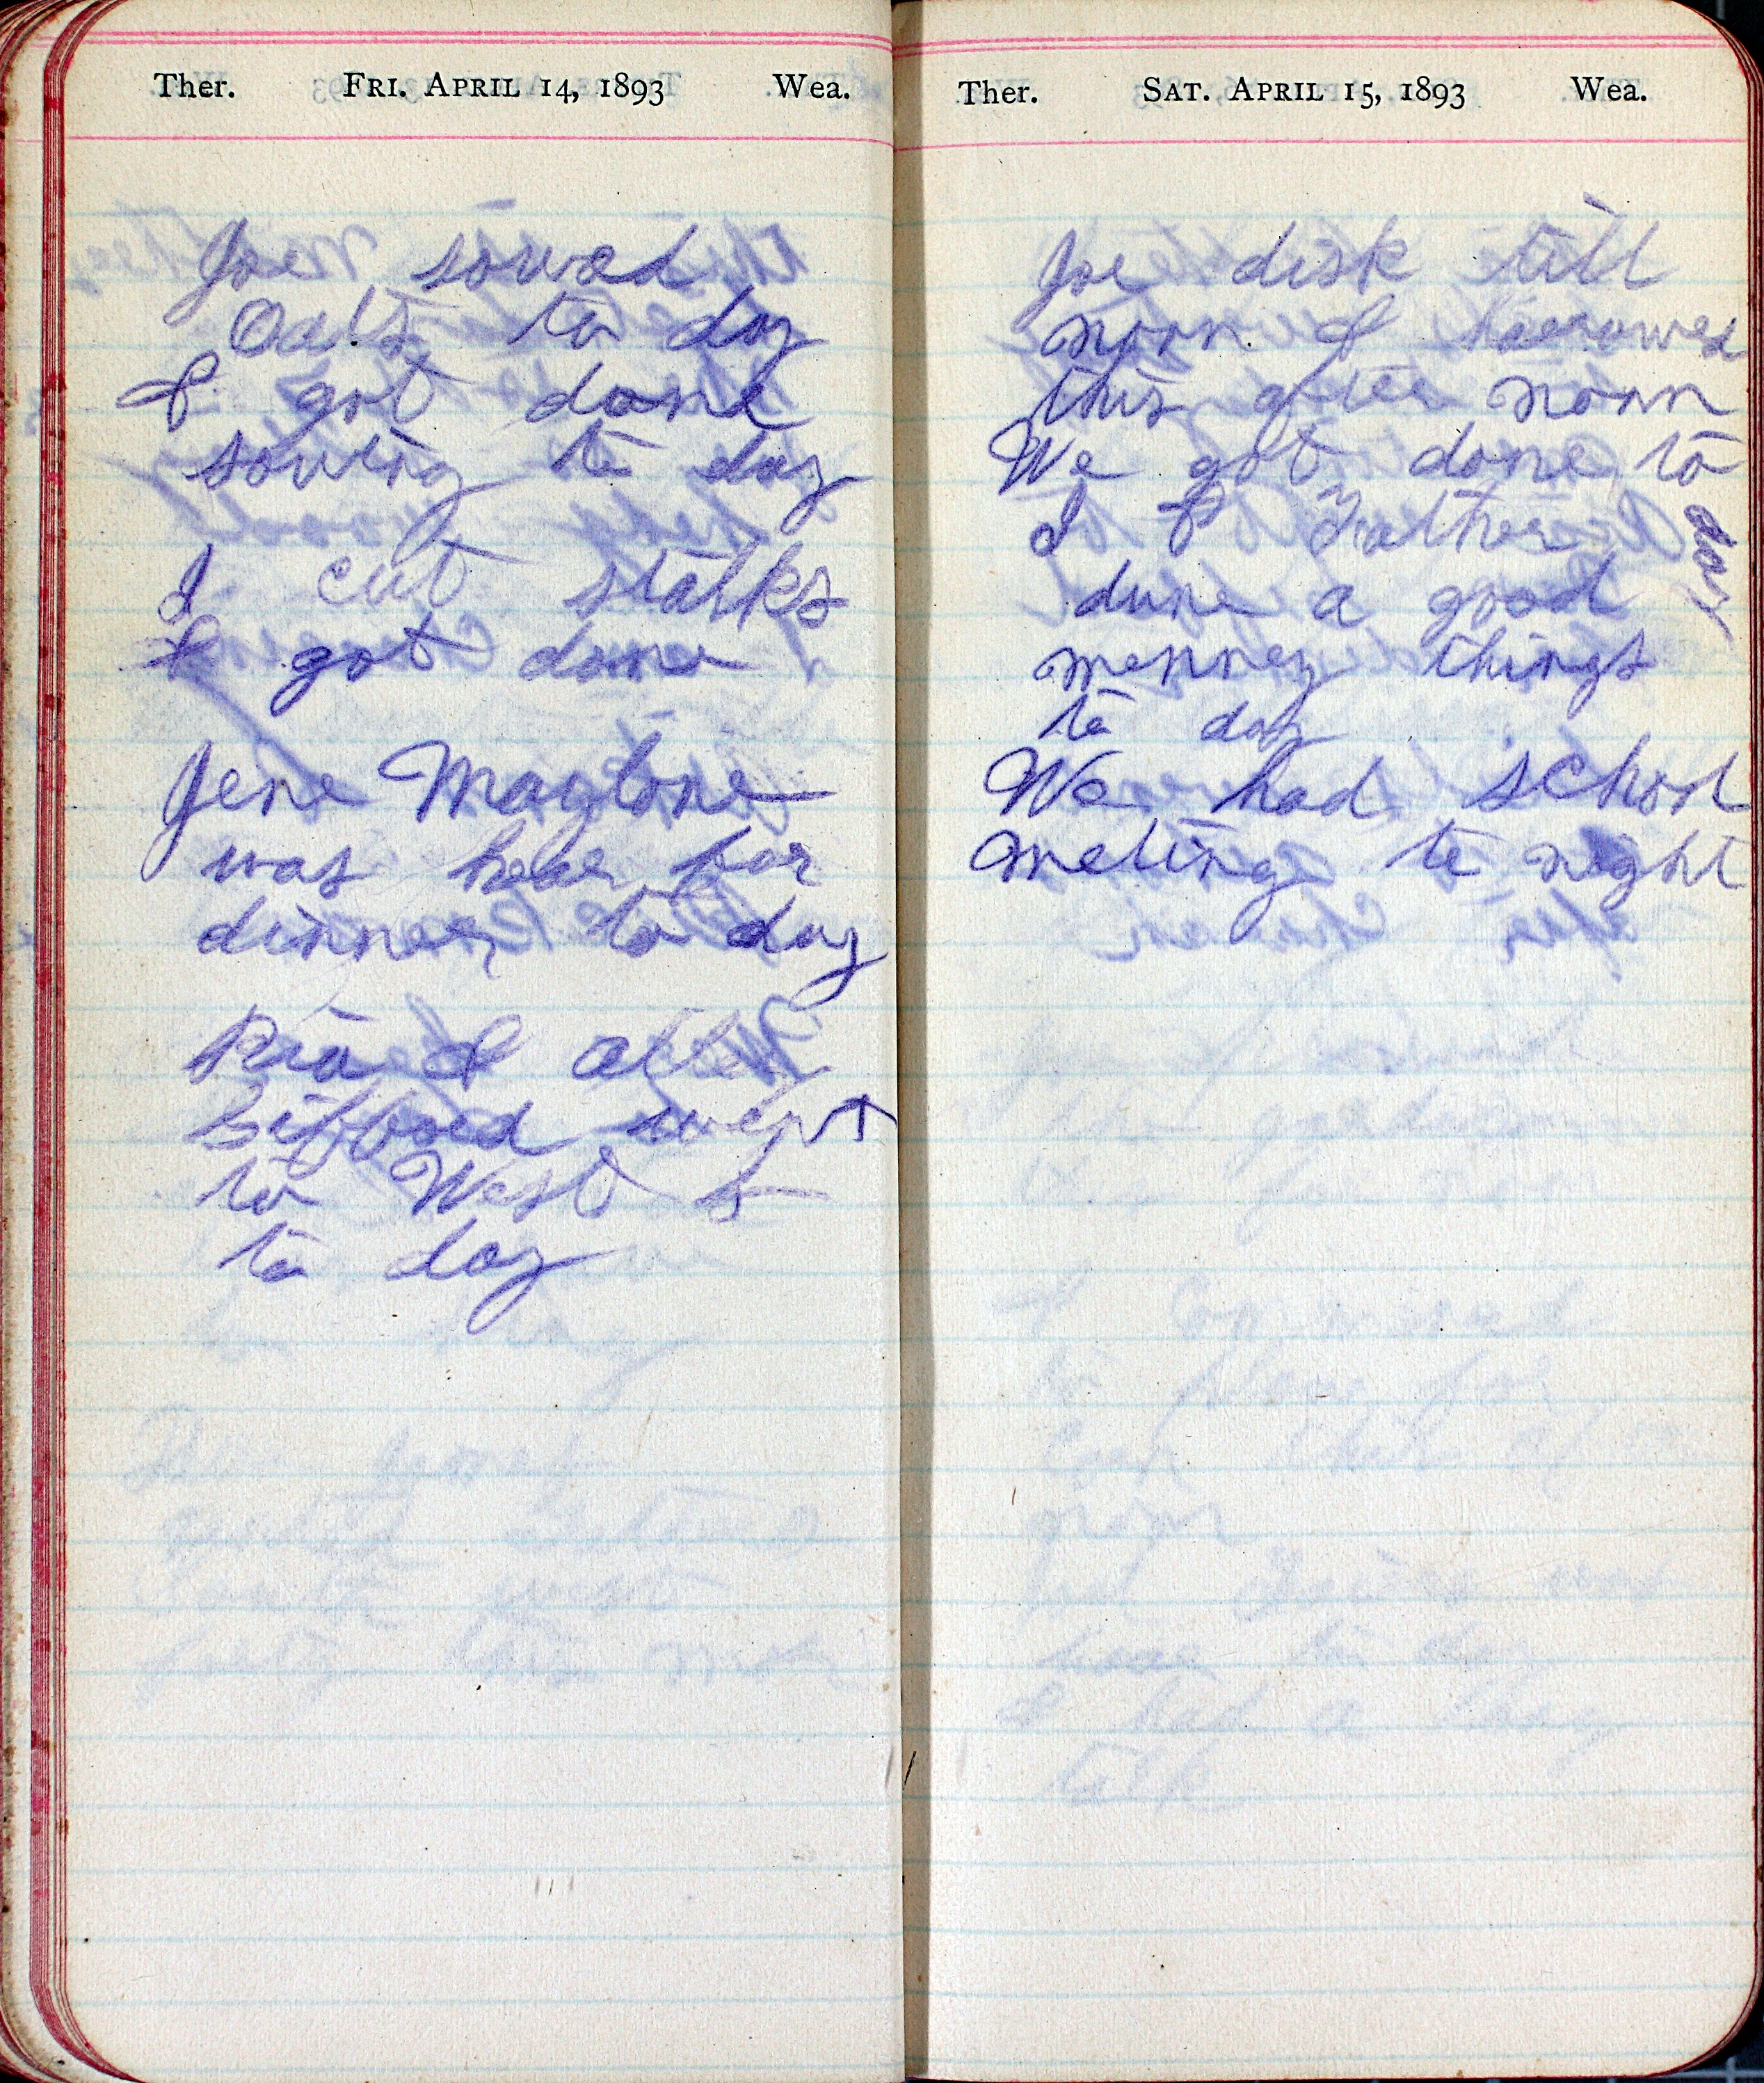 Ther. FRI. APRIL 14, 1893 Wea.
Joe sowed
Oats to day
& got done
sowing to day
I cut stalks
& got done
Jene Maylone
was hear for
dinner to day
& Allen
went
to West
to day
Ther. SAT. APRIL 15, 1893 Wea.
Joe disk till
noon & harrowed
this after noon
We got done to
day
I & Father
dune a good
menney things
to day
We had school
meting to night